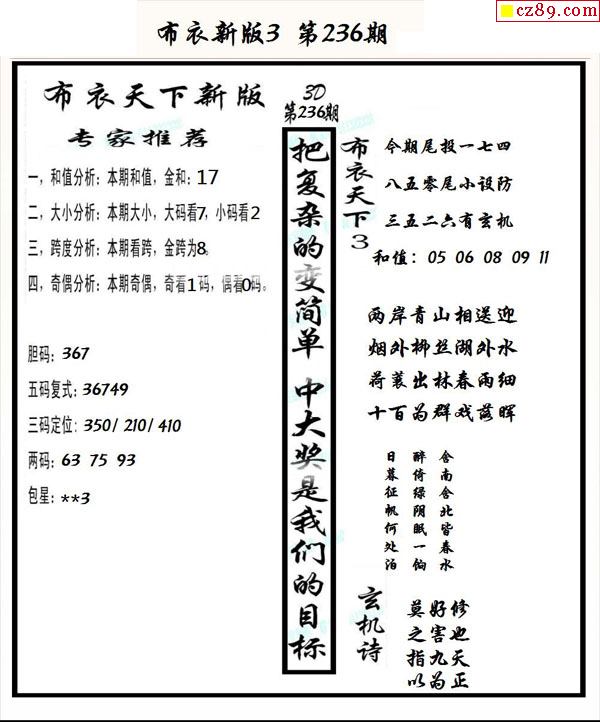 cz89.com
布衣新版3 第236期
布衣天下新版
专家推荐
一，和值分析：本期和值，金和：17
二，大小分析：本期大小，大码看7，小码看2
三，跨度分析：本期看跨，金跨为8。
四，奇偶分析：本期奇偶，奇看1码，偶看0码。
胆码：367
五码复式：36749
三码定位：350/210/410
两码：63 75 93
包星：**3
3D
第236期
把复杂的变简单 中大奖是我们的目标
布衣天下3
今期尾投一七四
八五零尾小设防
三五二六有玄机
和值：05 06 08 09 11
两岸青山相送迎
烟外柳丝湖外水
荷蓑出林春雨细
十百为群戏落晖
日暮征帆何处泊
醉倚绿阴眠一饷
舍南舍北皆春水
玄机诗
莫好修
之害也
指九天
以为正